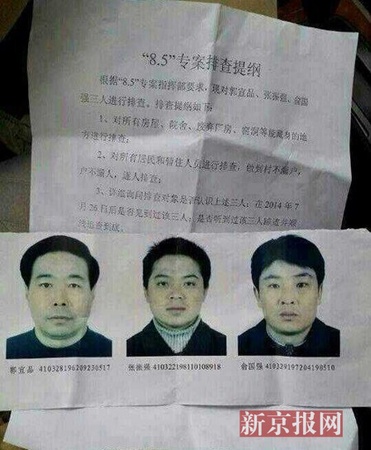 “8.5”专案排查提纲
根据“8.5”专案指挥部要求，现对郭宣品、张振强、俞国
强三人进行排查。排查提纲如下：
1、对所有房屋、院舍、废弃厂房、窑洞等能藏身的地
方进行排查；
2、对所有居民和暂住人员进行排查，做到村不漏户，
户不漏人，逐人排查；
3、访巡询问排查对象是否认识上述三人；在2014年7
月26日后是否见到过该三人；是否听到过该三人
新京报网